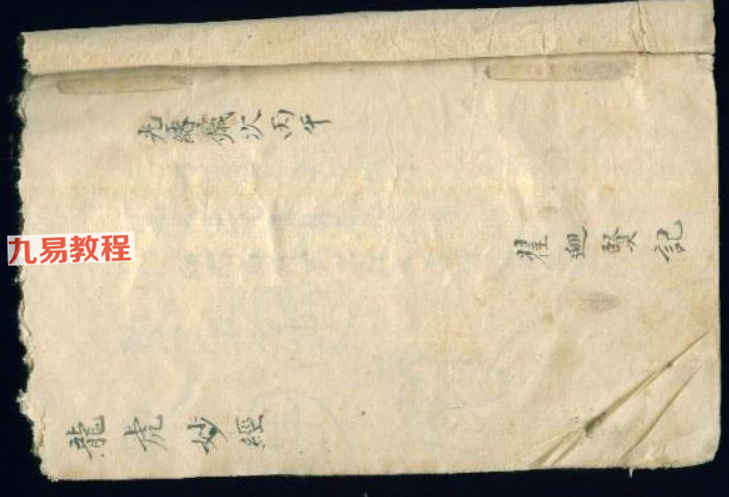 光緒歲次丙午
九易教程
賢記
龍虎妙經